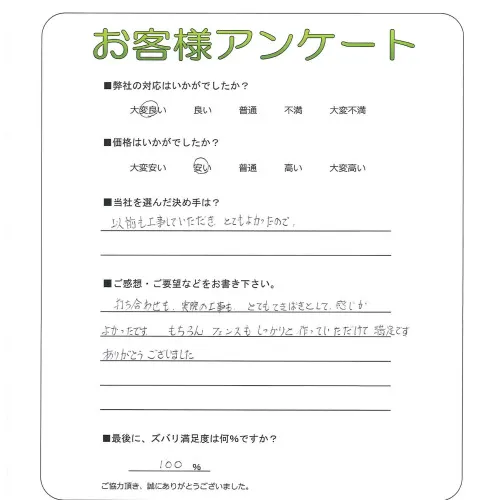 お客様アンケート
■弊社の対応はいかがでしたか？
大変良い 良い 普通 不満 大変不満
■価格はいかがでしたか？
大変安い 安い 普通 高い 大変高い
■当社を選んだ決め手は？
以前も工事していただき とてもよかったので。
■ご感想・ご要望などをお書き下さい。
打ち合わせも、実際の工事も、とてもてきぱきとして、感じが
よかったです もちろん フェンスも しっかりと 作っていただけて 満足です
ありがとうございました
■最後に、ズバリ満足度は何%ですか？
100 %
ご協力頂き、誠にありがとうございました。